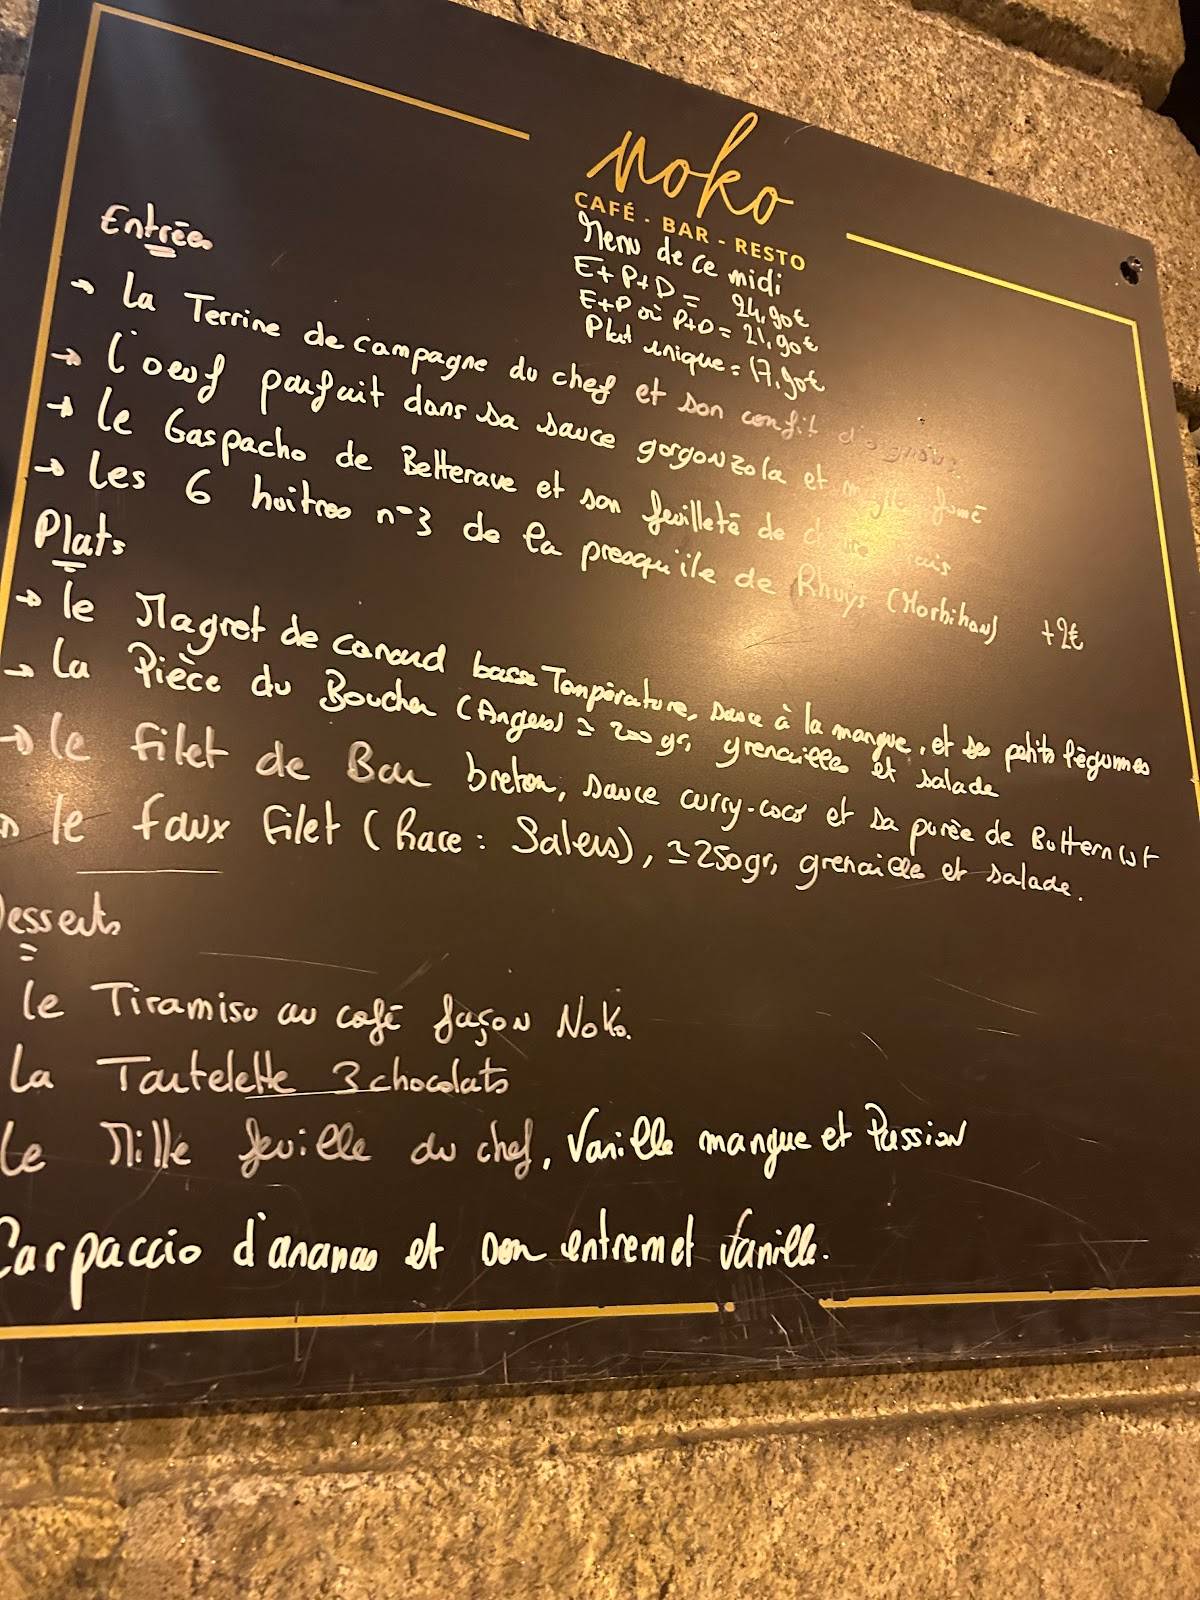 noko
CAFÉ - BAR - RESTO
Menu de ce midi
E+P+D = 24,90€
E+P où P+D = 21,90€
Plat unique = 17,90€
Entrées
→ La Terrine de campagne du chef et son confit
→ L'oeuf parfait dans sa sauce gorgonzola et fumé
→ Le Gaspacho de Betterave et son feuilleté de
→ Les 6 huitres n°3 de la presqu'île de Rhuys (Morbihan) +2€
Plats
→ Le Magret de canard basse Température, sauce à la mangue, et ses petits légumes
→ La Pièce du Boucher (Angus) ≃ 200gr, grenailles et salade
→ Le filet de Bar breton, sauce curry-coco et sa purée de Butternut
→ Le faux filet (Race : Salers), ≃ 250gr, grenaille et salade.
Desserts
Le Tiramisu au café façon Noko.
La Tartelette 3 chocolats
Le Mille feuille du chef, Vanille mangue et Passion
Carpaccio d'ananas et son entremet Vanille.